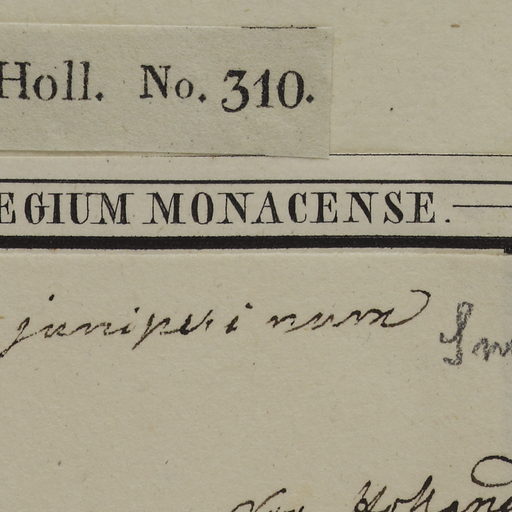 Holl. No. 310.
EGIUM MONACENSE.
juniperinum Sm
Nov. Holland